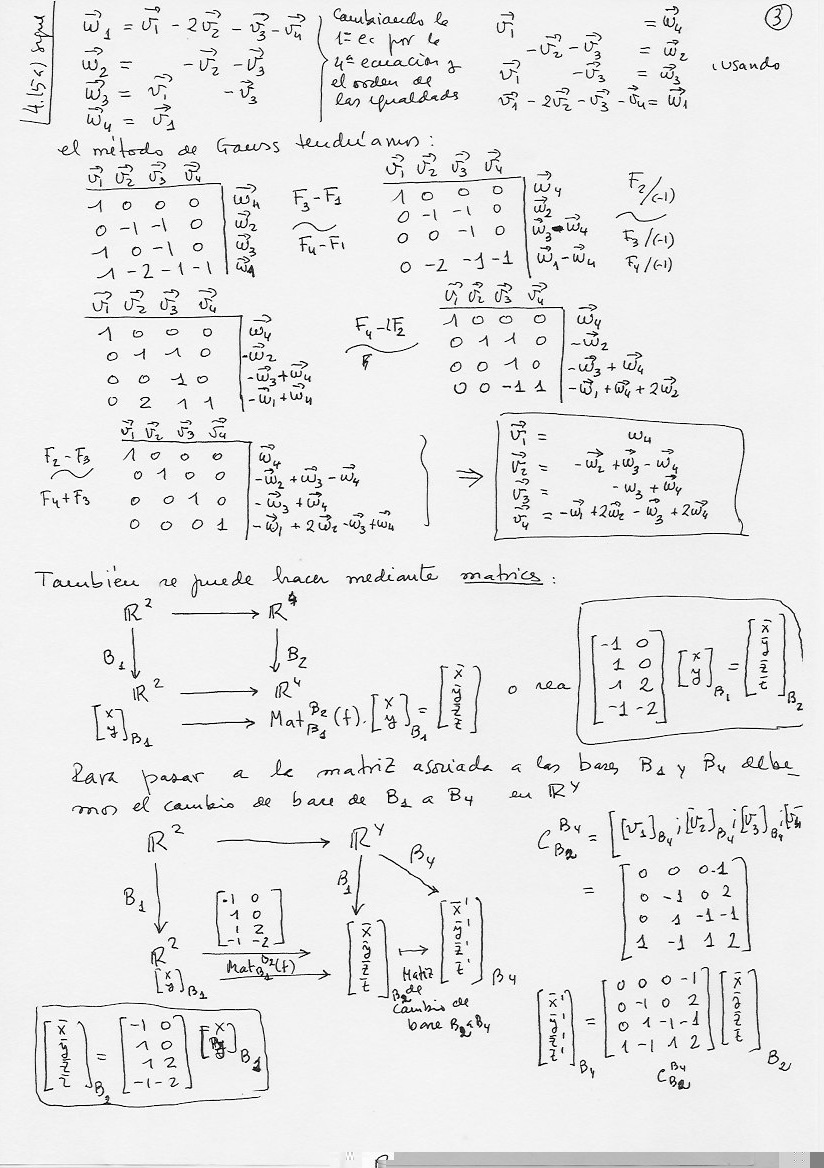 ③
4.15a) sigue
w⃗₁ = v⃗₁ - 2v⃗₂ - v⃗₃ - v⃗₄
w⃗₂ = - v⃗₂ - v⃗₃
w⃗₃ = v⃗₁ - v⃗₃
w⃗₄ = v⃗₁
Cambiando la
1ª ec por la
4ª ecuación y
el orden de
las igualdades
v⃗₁ = w⃗₄
- v⃗₂ - v⃗₃ = w⃗₂
v⃗₁ - v⃗₃ = w⃗₃
v⃗₁ - 2v⃗₂ - v⃗₃ - v⃗₄ = w⃗₁
, usando
el método de Gauss tendríamos:
v⃗₁ v⃗₂ v⃗₃ v⃗₄
1 0 0 0 | w⃗₄
0 -1 -1 0 | w⃗₂
1 0 -1 0 | w⃗₃
1 -2 -1 -1 | w⃗₁
F₃-F₁
~
F₄-F₁
v⃗₁ v⃗₂ v⃗₃ v⃗₄
1 0 0 0 | w⃗₄
0 -1 -1 0 | w⃗₂
0 0 -1 0 | w⃗₃ - w⃗₄
0 -2 -1 -1 | w⃗₁ - w⃗₄
F₂/(-1)
~
F₃/(-1)
F₄/(-1)
v⃗₁ v⃗₂ v⃗₃ v⃗₄
1 0 0 0 | w⃗₄
0 1 1 0 | -w⃗₂
0 0 1 0 | -w⃗₃+w⃗₄
0 2 1 1 | -w⃗₁+w⃗₄
F₄-2F₂
~
v⃗₁ v⃗₂ v⃗₃ v⃗₄
1 0 0 0 | w⃗₄
0 1 1 0 | -w⃗₂
0 0 1 0 | -w⃗₃ + w⃗₄
0 0 -1 1 | -w⃗₁+w⃗₄+2w⃗₂
F₂-F₃
~
F₄+F₃
v⃗₁ v⃗₂ v⃗₃ v⃗₄
1 0 0 0 | w⃗₄
0 1 0 0 | -w⃗₂+w⃗₃-w⃗₄
0 0 1 0 | -w⃗₃+w⃗₄
0 0 0 1 | -w⃗₁+2w⃗₂-w⃗₃+w⃗₄
⇒
v⃗₁ = w₄
v⃗₂ = -w⃗₂+w⃗₃-w⃗₄
v⃗₃ = -w₃+w⃗₄
v⃗₄ = -w⃗₁+2w⃗₂-w⃗₃+2w⃗₄
También se puede hacer mediante matrices:
ℝ² → ℝ⁴
B₁ B₂
ℝ² → ℝ⁴
[x y]B₁ → Mat B₂ B₁ (f) · [x y]B₁ = [x̄ ȳ z̄ t̄]
o sea
[-1 0
1 0
1 2
-1 -2] [x y]B₁ = [x̄ ȳ z̄ t̄]B₂
Para pasar a la matriz asociada a las bases B₁ y B₄ debe-
mos el cambio de base de B₁ a B₄ en ℝ⁴
ℝ² → ℝ⁴
B₁ B₁ B₄
ℝ²
[x y]B₁
[-1 0
1 0
1 2
-1 -2]
Mat B₂ B₁ (f)
[x̄ ȳ z̄ t̄]B₂ ↦ [x̄' ȳ' z̄' t̄']B₄
Matriz
de
cambio de
base B₂ a B₄
C B₄ B₂ = [[v₁]B₄ ; [v₂]B₄ ; [v₃]B₄ ; [v₄
= [0 0 0 -1
0 -1 0 2
0 1 -1 -1
1 -1 1 2]
[x̄' ȳ' z̄' t̄']B₄ = [0 0 0 -1
0 -1 0 2
0 1 -1 -1
1 -1 1 2] [x̄ ȳ z̄ t̄]B₂
C B₄ B₂
[x̄ ȳ z̄ t̄]B₂ = [-1 0
1 0
1 2
-1 -2] [x y]B₁